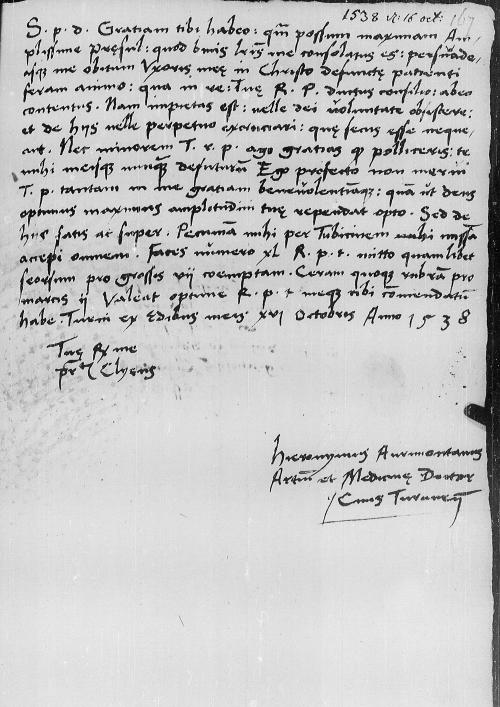 1538 16 oct: 167
S. p. d. Gratiam tibi habeo: qm possum maximam Am-
plissime Presul: quod bnis lris me consolatus es: persuade-
asq me obitum Vxoris meę in Christo defunctę patienti
feram animo: qua in re: Tuę R. P. ductus consilio: abeo
contentus. Nam impietas est: velle dei voluntate obsistere:
et de hijs velle perpetuo excruciari: quę secus esse neque-
ant. Nec minorem T. r. p. ago gratias q polliceris: te
mihi meisque nunq defuturum Ego profecto non merui
T. p. tantam in me gratiam benevolentiamq: quam ut deus
optimus maximus amplitudini tuę rependat opto. Sed de
hijs satis ac super. Pecuniam mihi per Tubicinem missa
accepi omnem. Faces numero XL R. p. t. mitto quamlibet
seorsum pro grossis vii coemptam. Ceram quoque rubram pro
marcis ij Valeat optime R. p. t meque tibi comendatum
habe Turni ex Edibus meis xvi Octobris Anno 1538
Tuę R me
p Clyens
Hieronymus Aurimontanus
Artiu et Medicinę Doctor
Civis